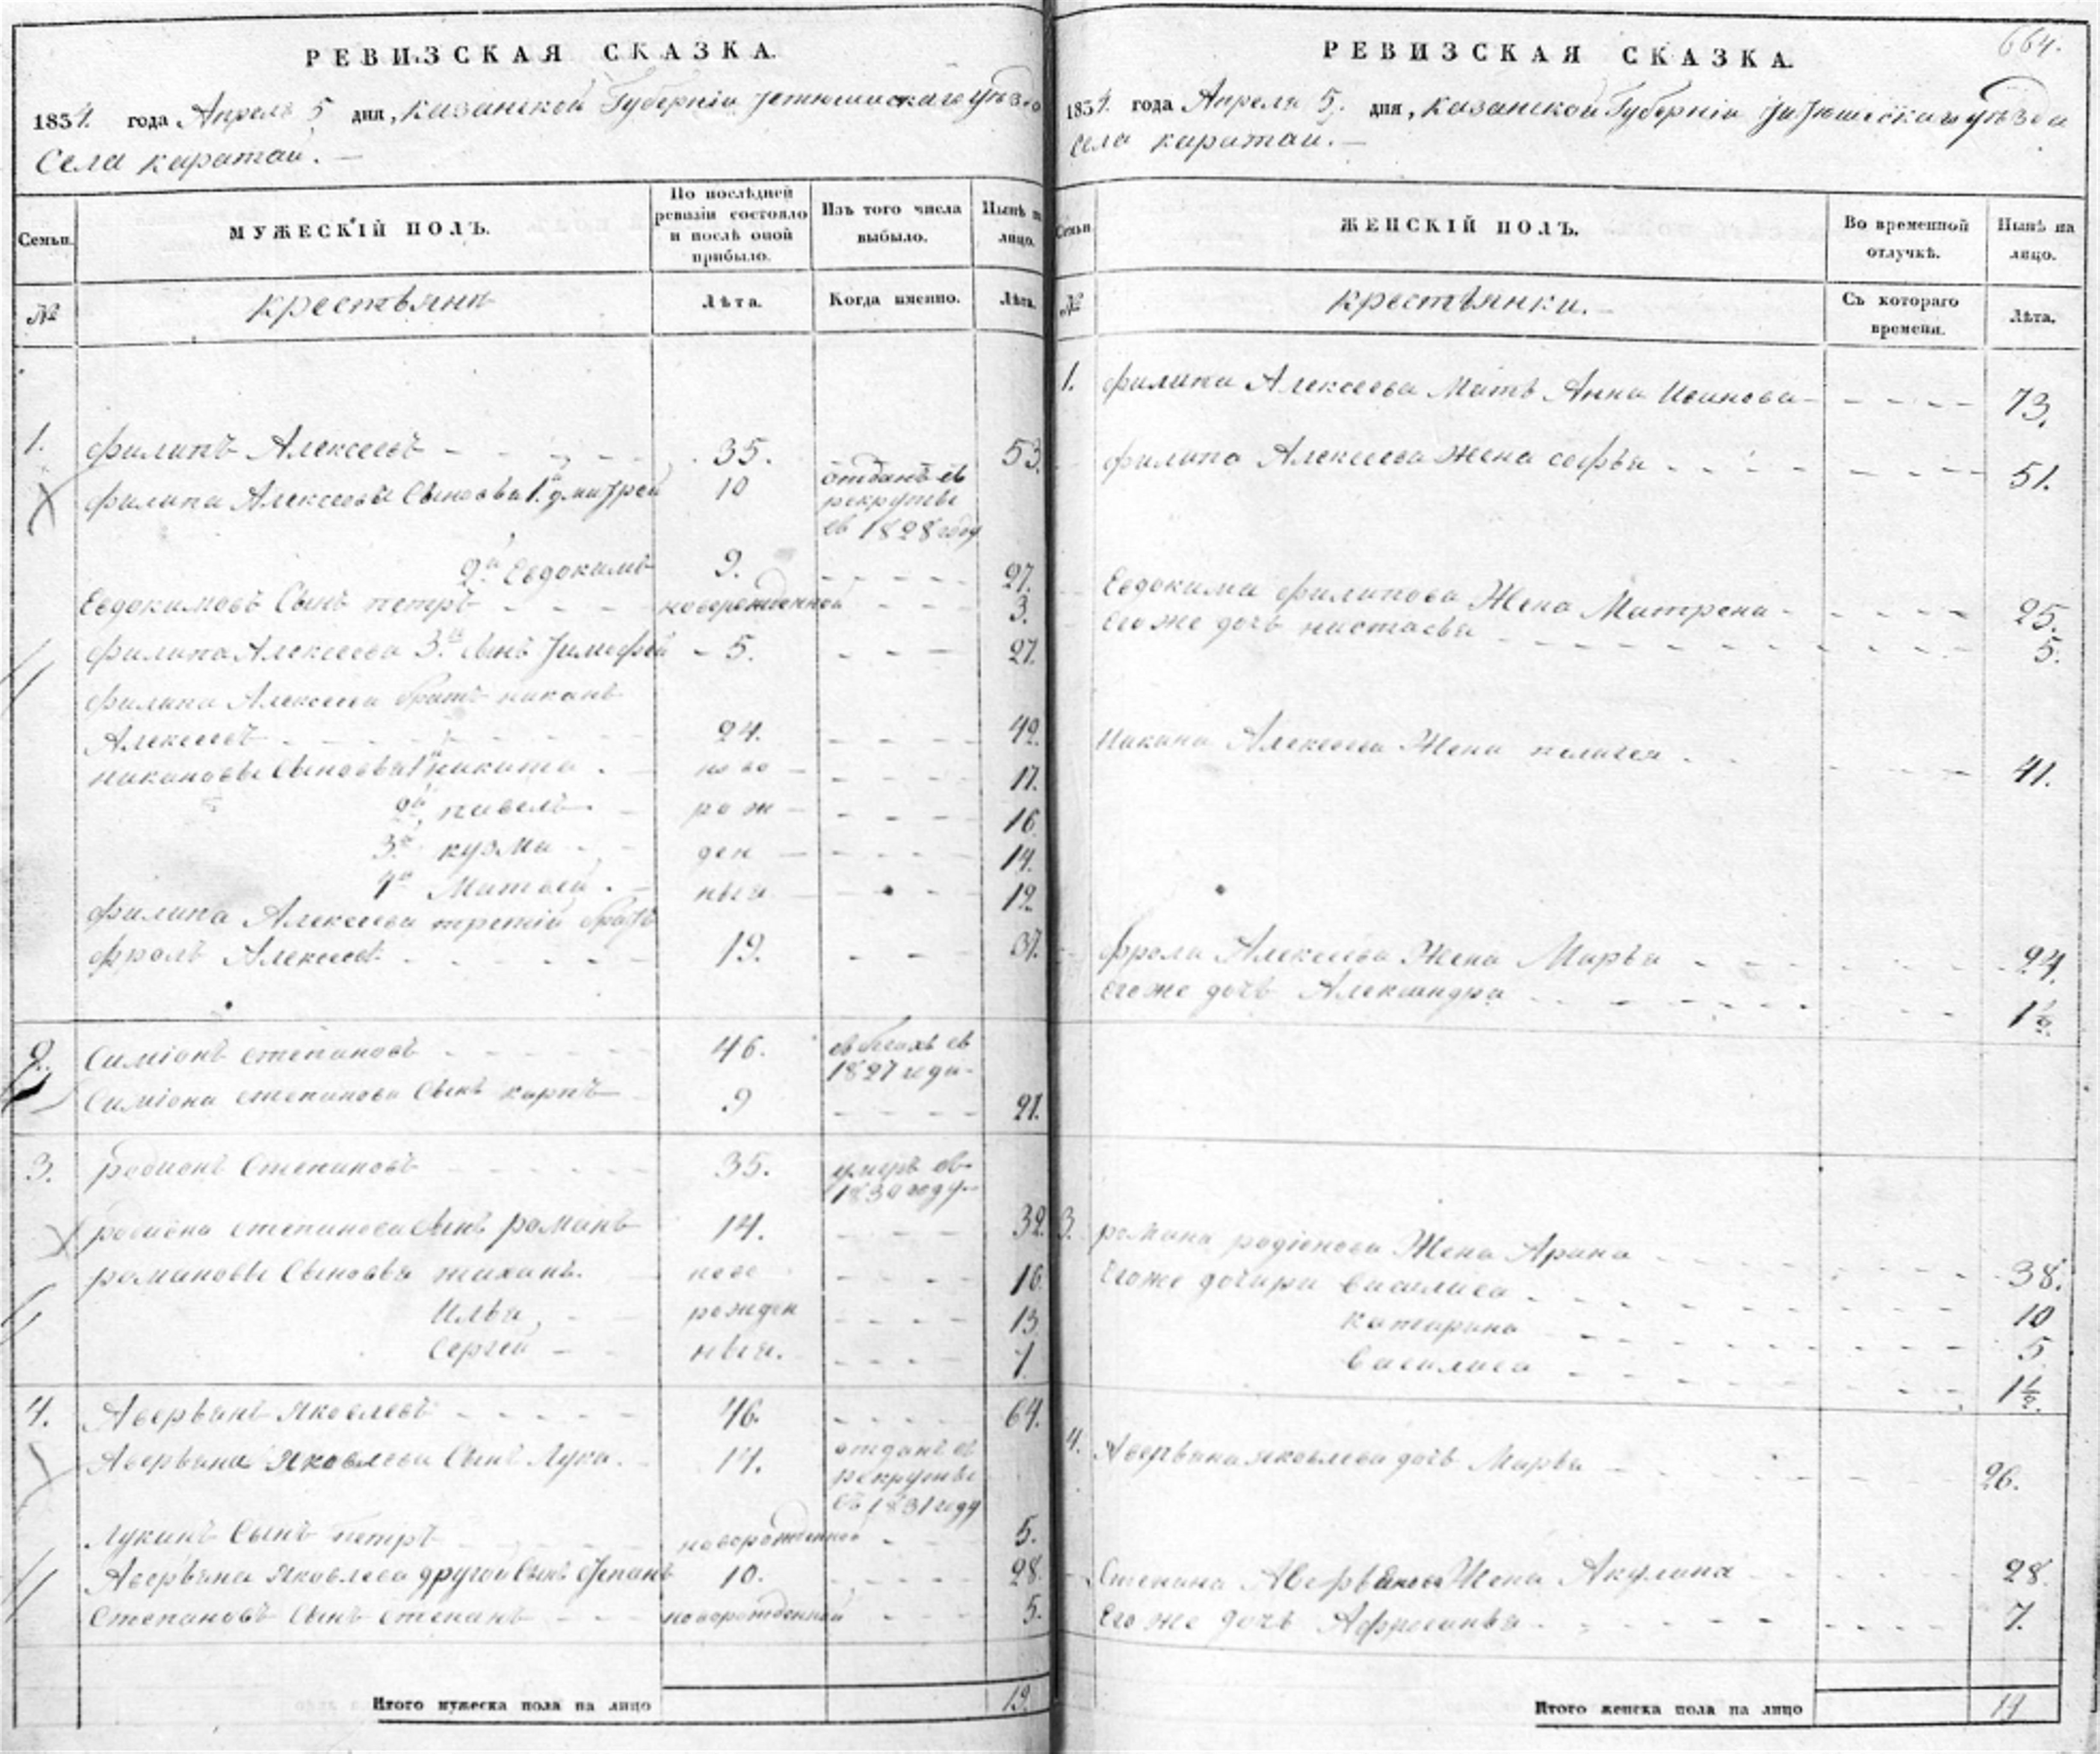 РЕВИЗСКАЯ СКАЗКА.
1834. года Апреля 5 дня, казанской Губерніи уезда
Села каратаи. —
Семьи.
МУЖЕСКІЙ ПОЛЪ.
По послѣдней ревизіи состояло и послѣ оной прибыло.
Изъ того числа выбыло.
Нынѣ на лицо.
№
крестьяня
Лѣта.
Когда именно.
Лѣта.
1. филипъ Алексеевъ 35. 53.
филипа Алексеева Сыновья 1й дмитрей 10 отданъ въ
рекруты
въ 1828 году
2й Евдокимъ 9. 27.
Евдокимовъ Сынъ петръ новорожденной 3.
филипа Алексеева 3й сынъ Тимофей 5. 27.
филипа Алексеева братъ никанъ
Алексеевъ 24. 42.
никановы Сыновья 1й никита ново 17.
2й павелъ рож 16.
3й кузма ден 14.
4й Матвей ныя 12.
филипа Алексеева третій братъ
фролъ Алексеевъ 19. 37.
2. Симіонъ степановъ 46. въ бегахъ съ
1827 года
Симіона степанова Сынъ карпъ 9 21.
3. родионъ Степановъ 35. умеръ въ
1830 году
родиона степанова Сынъ романъ 14. 32
романовы Сыновья тиханъ. ново 16.
Илья рожден 13
Сергей ныя. 1
4. Аверьянъ Яковлевъ 46. 64.
Аверьяна Яковлева Сынъ Лука. 14. отданъ въ
рекруты
въ 1831 году
Лукинъ Сынъ петръ новорожденной 5.
Аверьяна Яковлева другой Сынъ Степанъ 10. 28.
Степановъ Сынъ степанъ новорожденной 5.
Итого мужеска пола на лицо 19.
664.
РЕВИЗСКАЯ СКАЗКА.
1834. года Апреля 5. дня, казанской Губерніи уезда
села каратаи. —
Семьи.
ЖЕНСКІЙ ПОЛЪ.
Во временной отлучкѣ.
Нынѣ на лицо.
№
крестьянки.
Съ котораго времени.
Лѣта.
1. филипа Алексеева Мать Анна Иванова 73.
филипа Алексеева Жена софья 51.
Евдокима филипова Жена Матрена 25.
Его же дочь настасья 5.
Никана Алексеева Жена пелагея 41.
фрола Алексеева Жена Марья 24.
Его же дочь Александра 1½.
3. романа родіонова Жена Арина 38.
Его же дочери василиса 10
катарина 5
василиса 1½.
4. Аверьяна яковлева дочь Марья 26.
Степана Аверьянова Жена Акулина 28.
Его же дочь Афросинья 7.
Итого женска пола на лицо